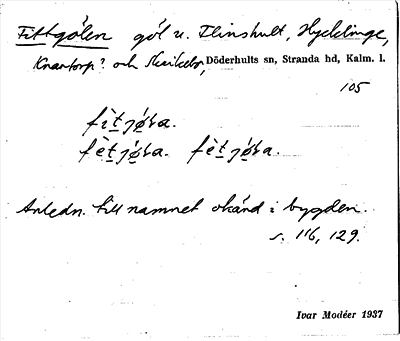 Fittgölen göl v. Flinshult, Hycklinge,
Knartorp? och Skrikebo, Döderhults sn, Stranda hd, Kalm. l.
105
Anledn. till namnet okänd i bygden.
s. 116, 129.
Ivar Modéer 1937